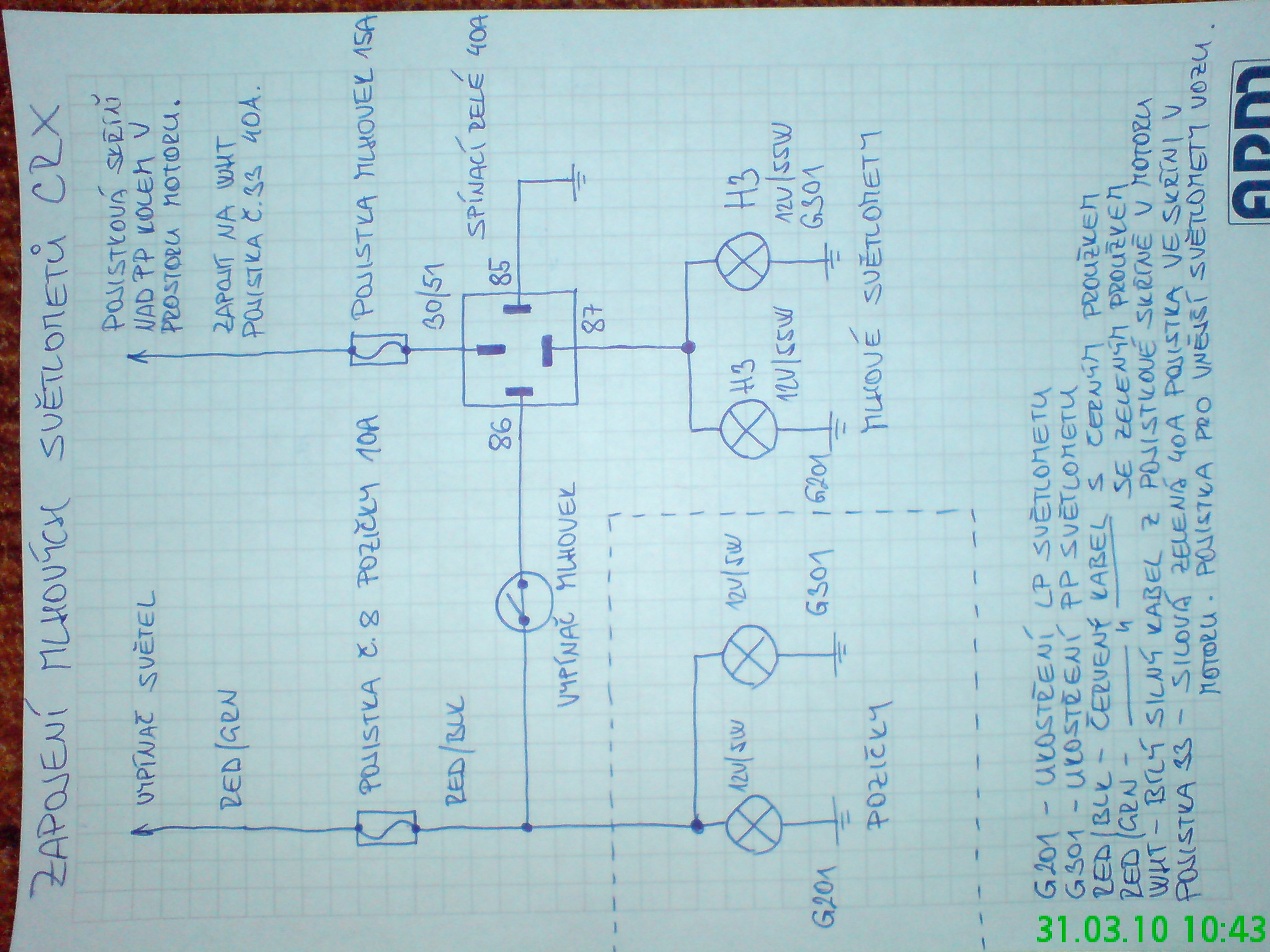 ZAPOJENÍ MLHOVÝCH SVĚTLOMETŮ CRX
VYPÍNAČ SVĚTEL
RED/GRN
POJISTKOVÁ SKŘÍŇ
NAD PP KOLEM V
PROSTORU MOTORU.
ZAPOJIT NA WHT
POJISTKA Č.33 40A.
POJISTKA Č.8 POZIČKY 10A
POJISTKA MLHOVEK 15A
RED/BLK
30/51
SPÍNACÍ RELÉ 40A
86
85
87
VYPÍNAČ MLHOVEK
12V/5W
12V/5W
H3
12V/55W
H3
12V/55W
G201
G301
G201
G301
POZIČKY
MLHOVÉ SVĚTLOMETY
G201 - UKOSTŘENÍ LP SVĚTLOMETU
G301 - UKOSTŘENÍ PP SVĚTLOMETU
RED/BLK - ČERVENÝ KABEL S ČERNÝM PROUŽKEM
RED/GRN - —— 〃 —— SE ZELENÝM PROUŽKEM
WHT - BÍLÝ SILNÝ KABEL Z POJISTKOVÉ SKŘÍNĚ V MOTORU
POJISTKA 33 - SILOVÁ ZELENÁ 40A POJISTKA VE SKŘÍNI V
MOTORU. POJISTKA PRO VNĚJŠÍ SVĚTLOMETY VOZU.
31.03.10 10:43